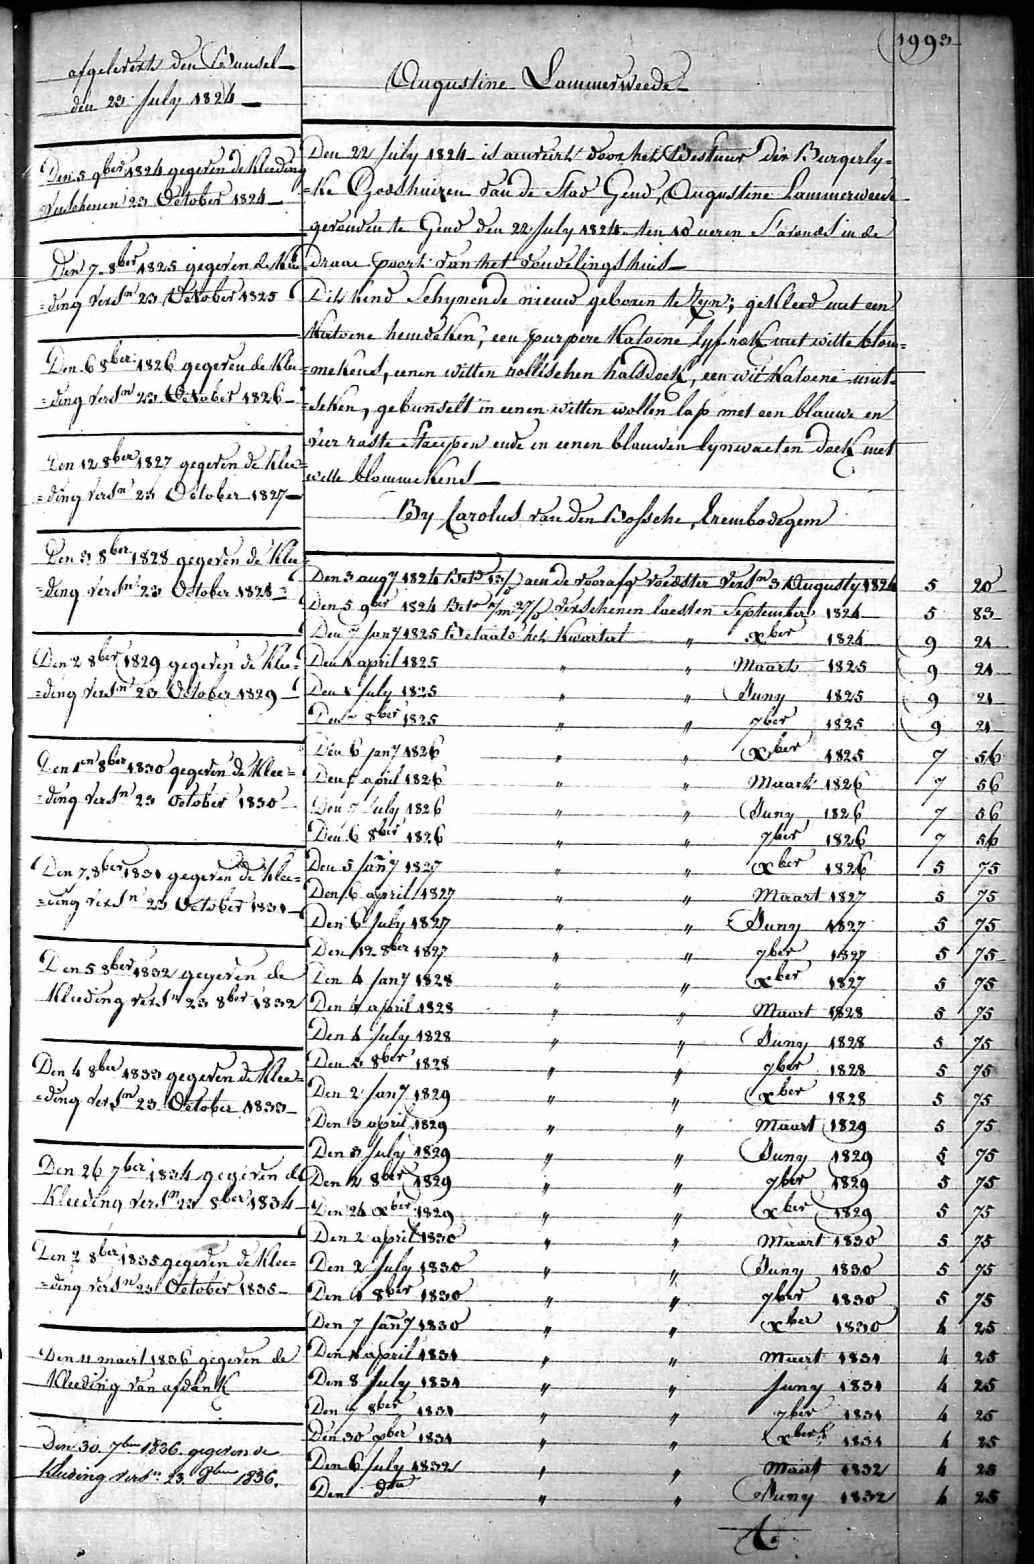 1993
afgelevert den Bunsel
den 23 July 1824
Den 5 9ber 1824 gegeven de kleeding
verschenen 23 October 1824
Den 7 8ber 1825 gegeven de klee
=ding versn 23 October 1825
Den 6 8ber 1826 gegeven de klee
=ding versn 23 October 1826
Den 12 8ber 1827 gegeven de klee
=ding versn 23 October 1827
Den 3 8ber 1828 gegeven de klee
=ding versn 23 October 1828
Den 2 8ber 1829 gegeven de klee=
=ding versn 23 October 1829
Den 1en 8ber 1830 gegeven de klee=
=ding versn 23 October 1830
Den 7 8ber 1831 gegeven de klee=
=ding versn 23 October 1831
Den 5 8ber 1832 gegeven de
kleeding versn 23 8ber 1832
Den 4 8ber 1833 gegeven de klee=
=ding versn 23 October 1833
Den 26 7ber 1834 gegeven de
kleeding versn 23 8ber 1834
Den 2 8ber 1835 gegeven de klee=
=ding versn 23 October 1835
Den 11 maert 1836 gegeven de
kleeding van afdank
Den 30 7ber 1836 gegeven de
kleeding versn 23 8ber 1836.
Augustine Lammerweede
Den 22 July 1824 is aenveirt door het Bestuur der Burgerly=
=ke Godshuizen van de Stad Gend, Augustine Lammerweede
gevonden te Gend den 22 July 1824 ten 10 ueren s'avonds in de
draae poort van het vondelingshuis
Dit kind schynende nieuw geboren te zyn; gekleed met een
katoene hemdeken, een purpere katoene lyfrok met witte blom=
=mekens, eenen witten nollischen halsdoek, een wit katoene mut=
=seken, gebunselt in eenen witten wollen lap met een blauwe en
vier raste streepen ende in eenen blauwen lynwaeten doek met
witte blommekens
By Carolus van den Bossche, Erembodegem
Den 3 augy 1824 Betd 13/0 aen de voorafge voedster versn 3 Augusty 1824 5 20
Den 5 9ber 1824 Betd 27/0 verschenen laesten September 1824 5 83
Den 7 Jany 1825 Betaald het kwartaet " xber 1824 9 21
Den 1 april 1825 " " Maart 1825 9 21
Den 1 July 1825 " " Juny 1825 9 21
Den 7 8ber 1825 " " 7ber 1825 9 21
Den 6 Jany 1826 " " xber 1825 7 56
Den 7 april 1826 " " Maart 1826 7 56
Den 7 July 1826 " " Juny 1826 7 56
Den 6 8ber 1826 " " 7ber 1826 7 56
Den 5 Jany 1827 " " xber 1826 5 75
Den 6 april 1827 " " Maart 1827 5 75
Den 6 July 1827 " " Juny 1827 5 75
Den 12 8ber 1827 " " 7ber 1827 5 75
Den 4 Jany 1828 " " xber 1827 5 75
Den 4 april 1828 " " Maart 1828 5 75
Den 4 July 1828 " " Juny 1828 5 75
Den 3 8ber 1828 " " 7ber 1828 5 75
Den 2 Jany 1829 " " xber 1828 5 75
Den 3 april 1829 " " Maart 1829 5 75
Den 3 July 1829 " " Juny 1829 5 75
Den 2 8ber 1829 " " 7ber 1829 5 75
Den 24 xber 1829 " " xber 1829 5 75
Den 2 april 1830 " " Maart 1830 5 75
Den 2 July 1830 " " Juny 1830 5 75
Den 1 8ber 1830 " " 7ber 1830 5 75
Den 7 Jany 1830 " " xber 1830 4 25
Den 1 april 1831 " " Maert 1831 4 25
Den 8 July 1831 " " Juny 1831 4 25
Den 7 8ber 1831 " " 7ber 1831 4 25
Den 30 xber 1831 " " xber 1831 4 25
Den 6 July 1832 " " Maart 1832 4 25
Den dto " " Juny 1832 4 25